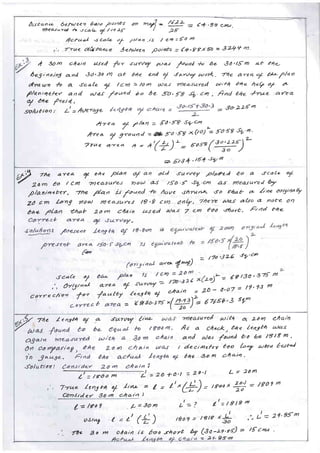 Distance between two points on map = 1622/25 = 64.88 cm.
measured to scale of 1:25
Actual scale of plan is 1 cm = 50 m
∴ True distance between points = 64.88 × 50 = 3244 m
A 30m chain used for survey was found to be 30.15m at the
beginning and 30.30 m at the end of survey work. The area of the plan
drawn to a scale of 1cm = 10m was measured with the help of a
planimeter and was found to be 50.58 sq. cm. Find the true area
of the field.
Solution: L' = Average length of chain = (30.15+30.3)/2 = 30.225 m
Area of plan = 50.58 sq.cm
Area of ground = 50.58 × (10)² = 5058 sq.m.
True area A = A' (L'/L)² = 5058 (30.225/30)²
= 5134.154 sq.m
The area of the plan of an old survey plotted to a scale of
20m to 1cm measures now as 150.5 sq.cm as measured by
planimeter. The plan is found to have shrunk so that a line originally
20 cm long now measures 18.8 cm only. There was also a note on
the plan that 20m chain used was 7 cm too short. Find the
correct area of survey.
Solution: present length of 18.8m is equivalent to 20m original length
present area 150.5 sq.cm is equivalent to = 150.5 (20/18.8)²
(original area of map) = 170.326 sq.cm
Scale of the plan is 1cm = 20m
∴ Original area of survey = 170.326 × (20)² = 68130.375 m²
Correction for faulty length of chain = 20 - 0.07 = 19.93 m
Correct area = 68130.375 × (19.93/20)² = 67654.3 sqm
The length of a survey line was measured with a 20m chain
was found to be equal to 1800m. As a check, the length was
again measured with a 30m chain and was found to be 1818 m.
On comparing the 20m chain was 1 decimeter too long when tested
in gauge. Find the actual length of the 30m chain.
Solution: Consider 20m chain:
l' = 1800 m L' = 20 + 0.1 = 20.1 L = 20m
∴ True length of line = l = l' × (L'/L) = 1800 × 20.1/20 = 1809 m
Consider 30m chain:
l = 1809 L = 30m L' = ? l' = 1818 m
Using l = l' (L'/L) 1809 = 1818 × L'/30 ∴ L' = 29.85m
∴ The 30m chain is too short by (30-29.85) = 15cm.
Actual length of chain = 29.85m